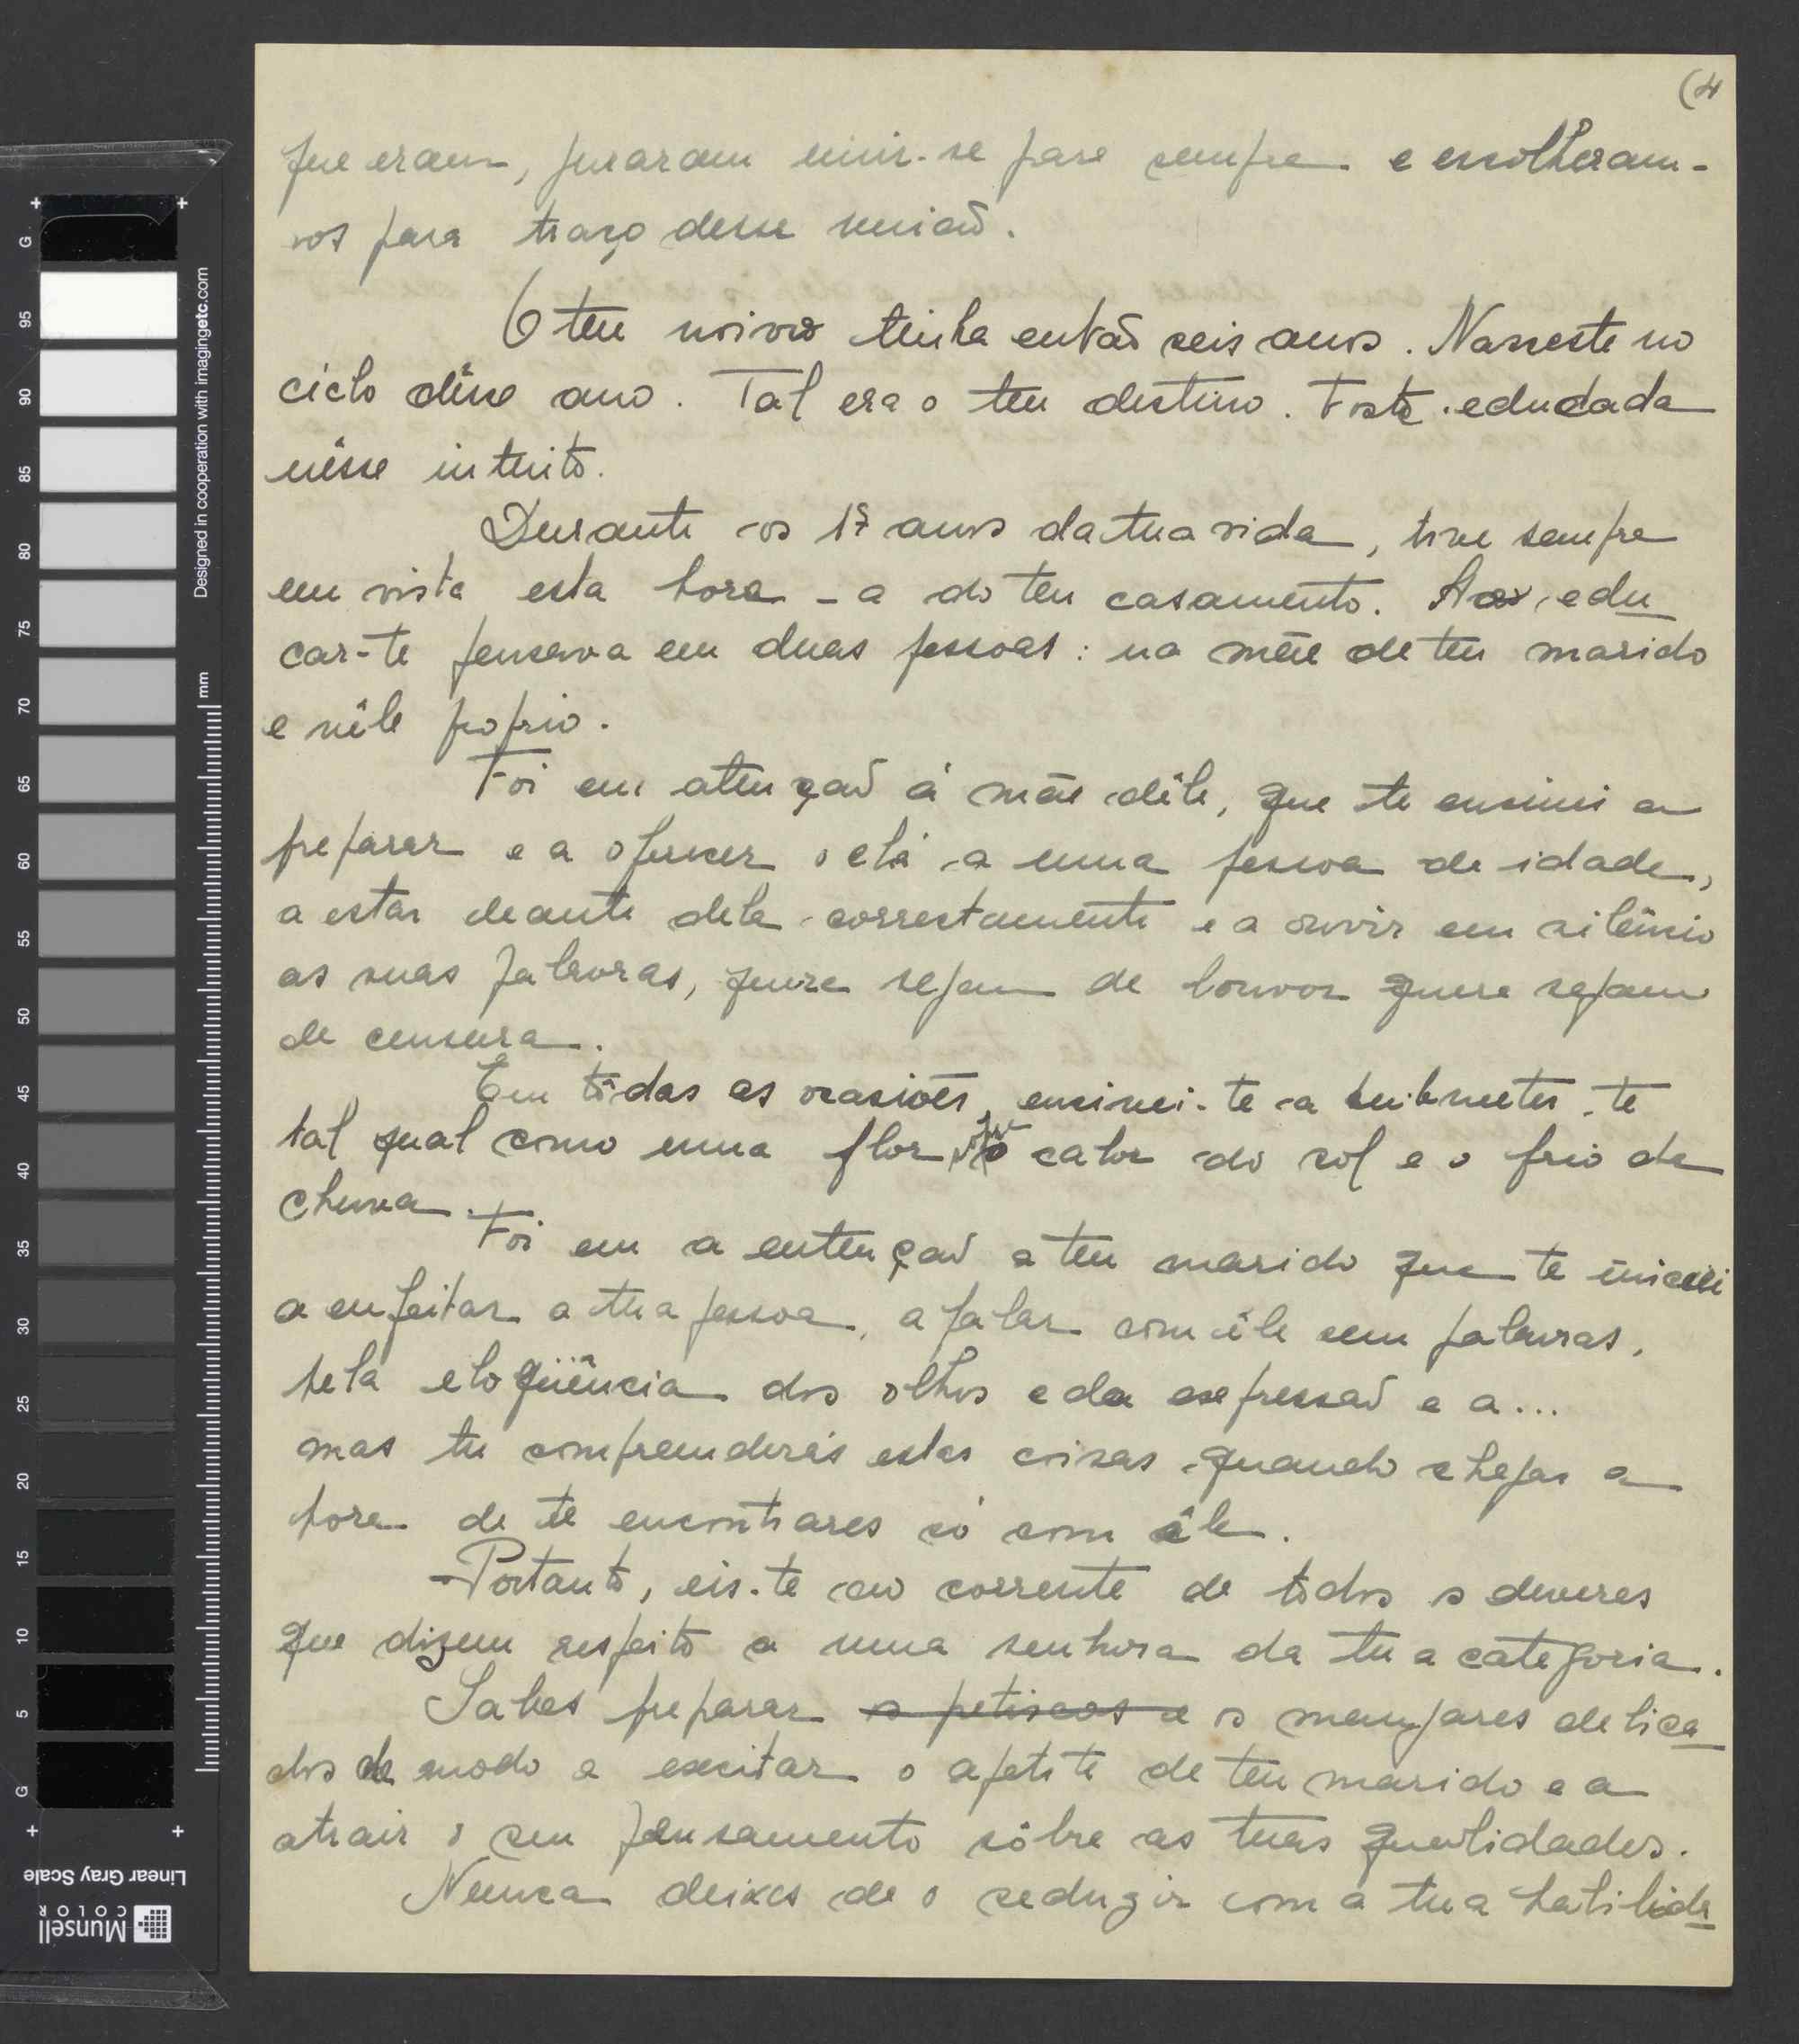 (4
que eram, juraram unir-se para sempre e escolheram-
vos para traço dessa união.
O teu noivo tinha então seis anos. Nasceste no
ciclo dêsse ano. Tal era o teu destino. Foste educada
nêsse intuito.
Durante os 17 anos da tua vida, tive sempre
em vista esta hora - a do teu casamento. Ao edu
car-te pensava em duas pessoas: na mãe de teu marido
e nêle proprio.
Foi em atenção á mãe dêle, que te ensinei a
preparar e a oferecer o chá a uma pessoa de idade,
a estar deante dela correctamente e a ouvir em silêncio
as suas palavras, quere sejam de louvor quere sejam
de censura.
Em tôdas as ocasiões, ensinei-te a submeter-te
tal qual como uma flor o calor do sol e o frio da
chuva.
Foi em a entenção a teu marido que te ensinei
a enfeitar a tua pessoa, a falar com êle sem palavras,
pela eloqüência dos olhos e da expressão e a...
mas tu compreenderás estas coisas quando chegar a
hora de te encontrares só com êle.
Portanto, eis-te ao corrente de todos os deveres
que dizem respeito a uma senhora da tua categoria.
Sabes preparar os petiscos e os manjares delica
dos de modo a excitar o apetite de teu marido e a
atrair o seu pensamento sôbre as tuas qualidades.
Nunca deixes de o seduzir com a tua habilida
Designed in cooperation with imagingetc.com
mm
G
95
90
85
80
75
70
65
60
55
50
45
40
35
30
25
20
15
10
5
G
Linear Gray Scale
Munsell
COLOR